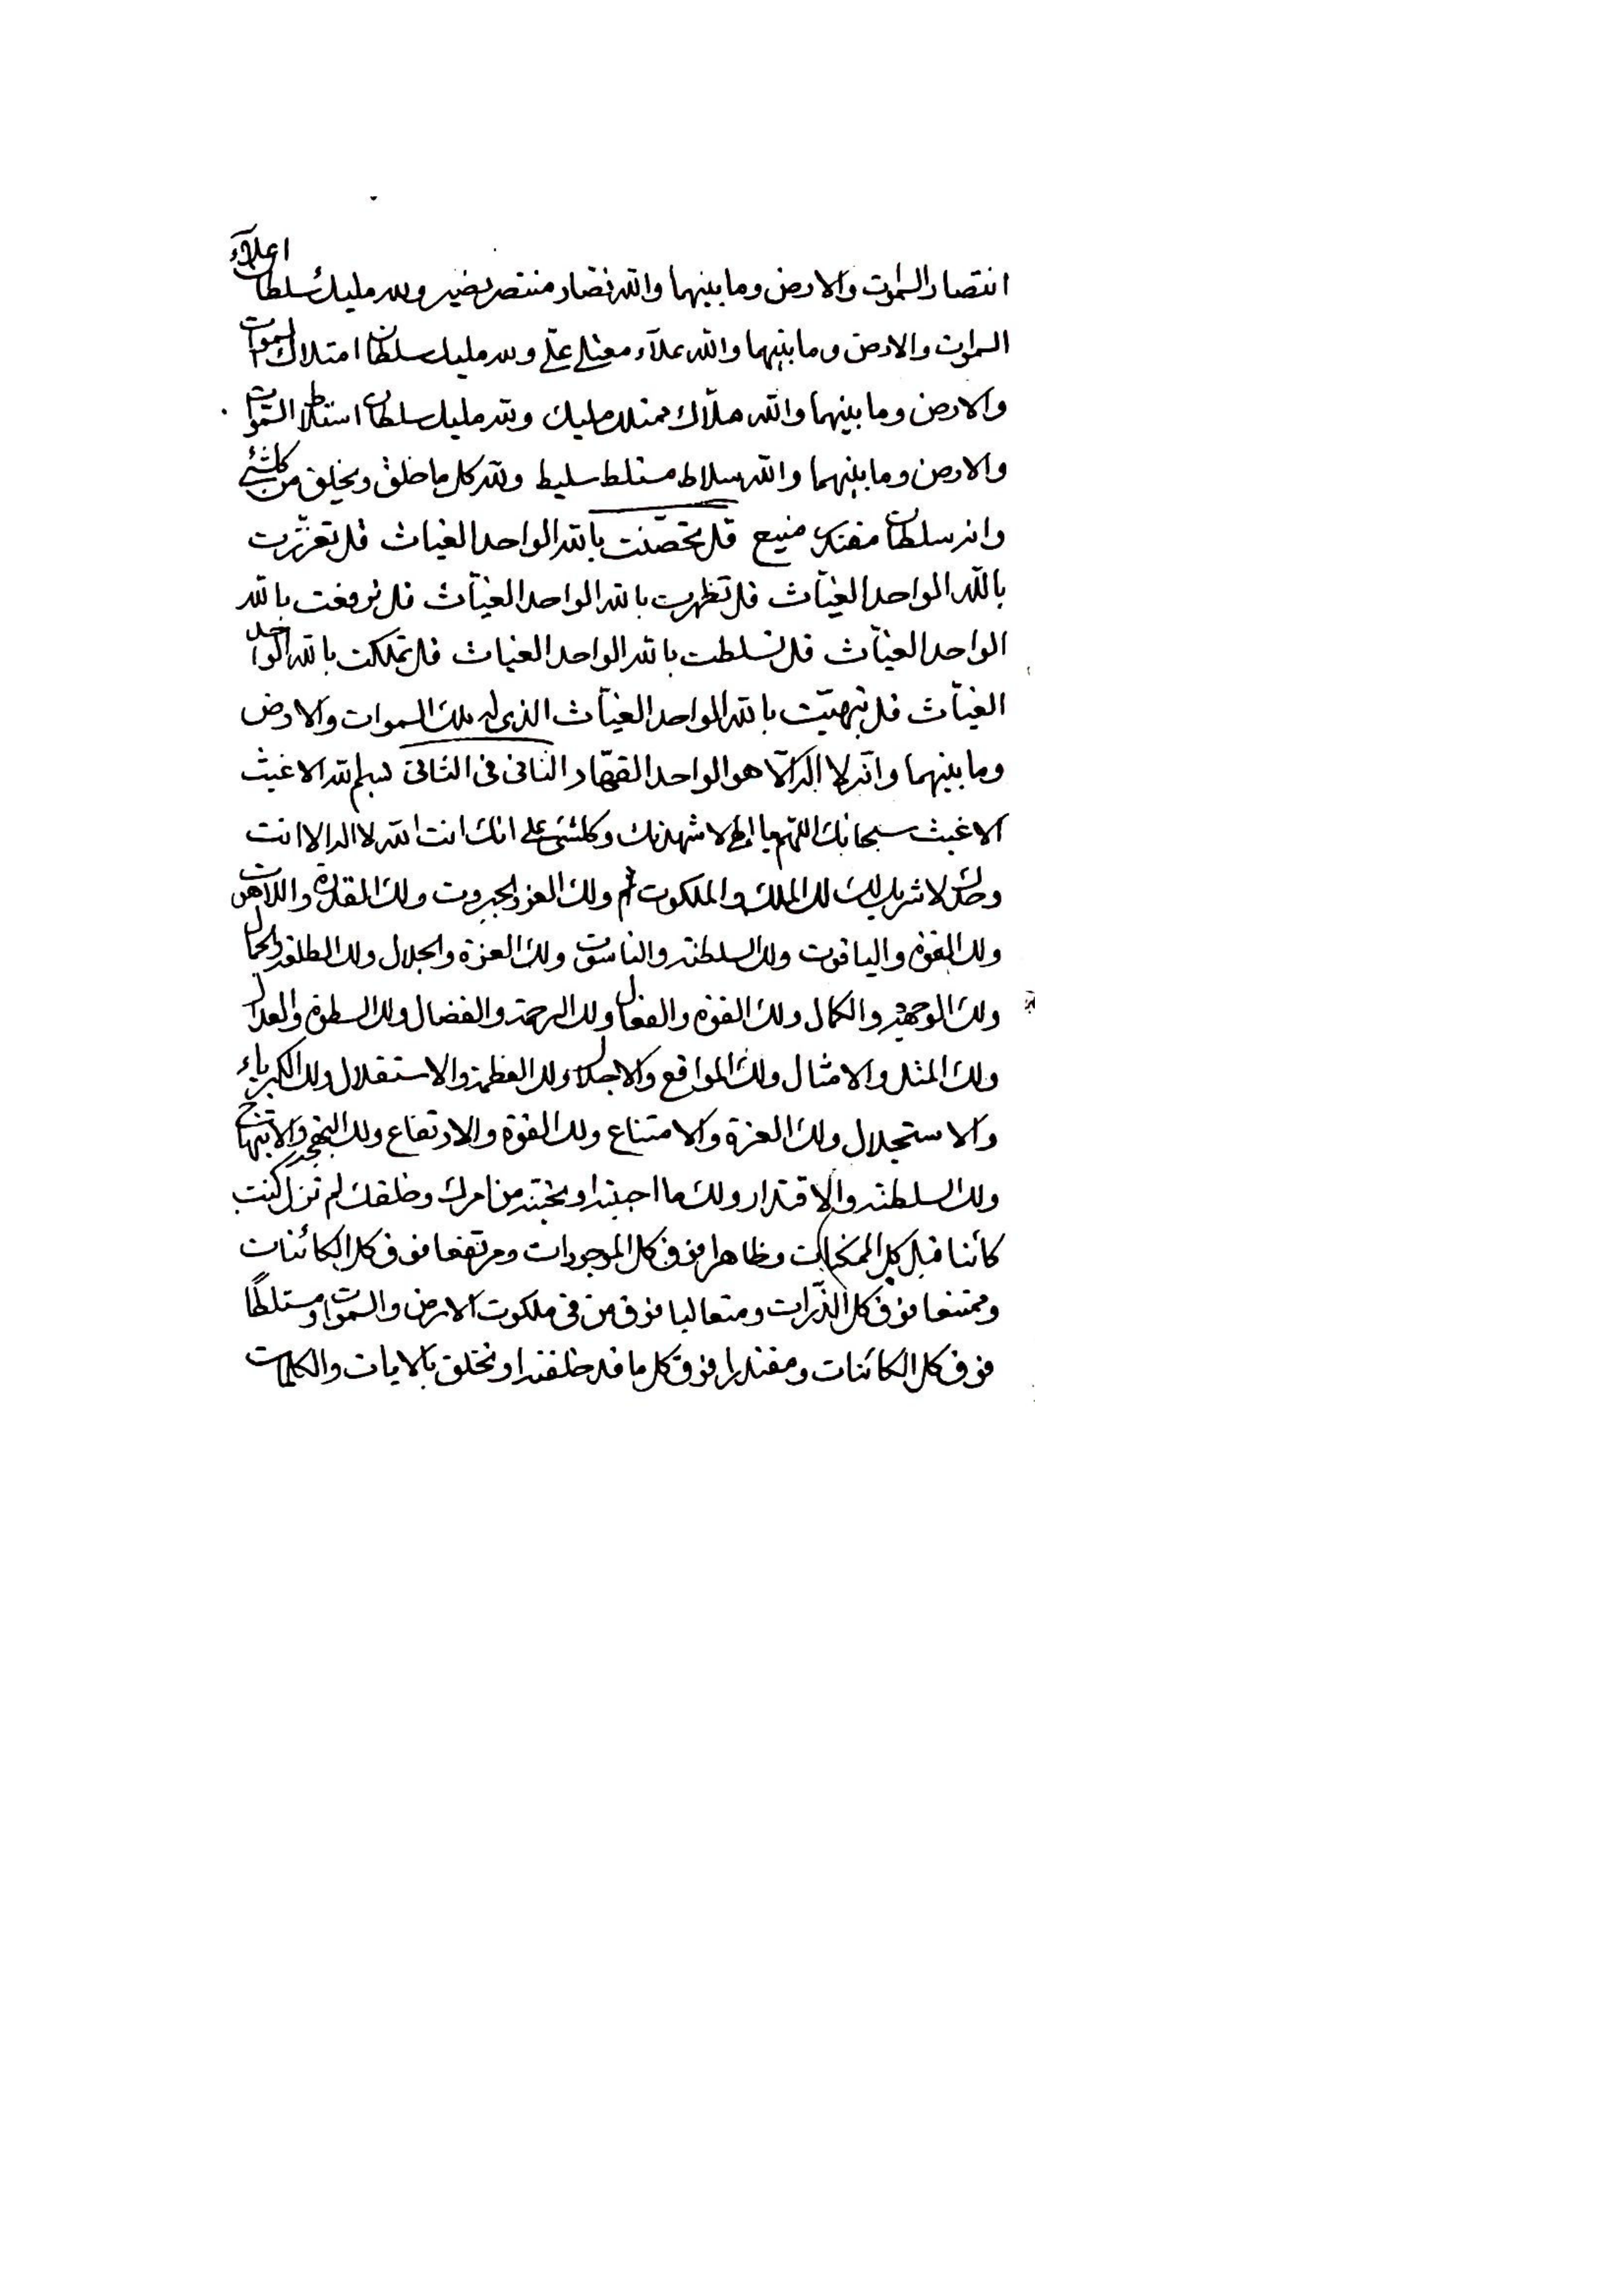 انتصار السموات والارض وما بينهما والله نصار منتصر نصير ولله مليك سلطان اعلاء
السموات والارض وما بينهما والله علاء معتلي علي ولله مليك سلطان امتلاك السموات
والارض وما بينهما والله ملاك ممتلك مليك ولله مليك سلطان استلاط السموات
والارض وما بينهما والله سلاط مستلط سليط ولله كل ما خلق ويخلق من كلشئ
وانه سلطان مقتدر منيع قل تحصنت بالله الواحد الغياث قل تعززت
بالله الواحد الغياث قل تظهرت بالله الواحد الغياث قل ترفعت بالله
الواحد الغياث قل تسلطت بالله الواحد الغياث قل تملكت بالله الواحد
الغياث قل تبهيت بالله الواحد الغياث الذى له ملك السموات والارض
وما بينهما وانه لا اله الا هو الواحد القهار الثانى فى الثانى بسم الله الاغيث
الاغيث سبحانك اللهم يا الهى لاشهدنك وكلشئ على انك انت الله لا اله الا انت
وحدك لا شريك لك لك الملك والملكوت ولك العز والجبروت ولك القدرة واللاهوت
ولك القوة والياقوت ولك السلطنة والناسوت ولك العزة والجلال ولك الطلعة والجمال
ولك الوجهة والكمال ولك القوة والفعال ولك الرحمة والفضال ولك السطوة والعدال
ولك المثل والامثال ولك المواقع والاجلال ولك العظمة والاستقلال ولك الكبرياء
والاستجلال ولك العزة والامتناع ولك القوة والارتفاع ولك البهجة والابتهاج
ولك السلطنة والاقتدار ولك ما احببته او تحبنه من امرك وخلقك لم تزل كنت
كائنا قبل كل الممكنات وظاهرا فوق كل الموجودات ومرتفعا فوق كل الكائنات
وممتنعا فوق كل الذرات ومتعاليا فوق من فى ملكوت الارض والسموات ومستلطًا
فوق كل الكائنات ومقتدرا فوق كل ما قد خلقته او تخلق بالايات والكلمات